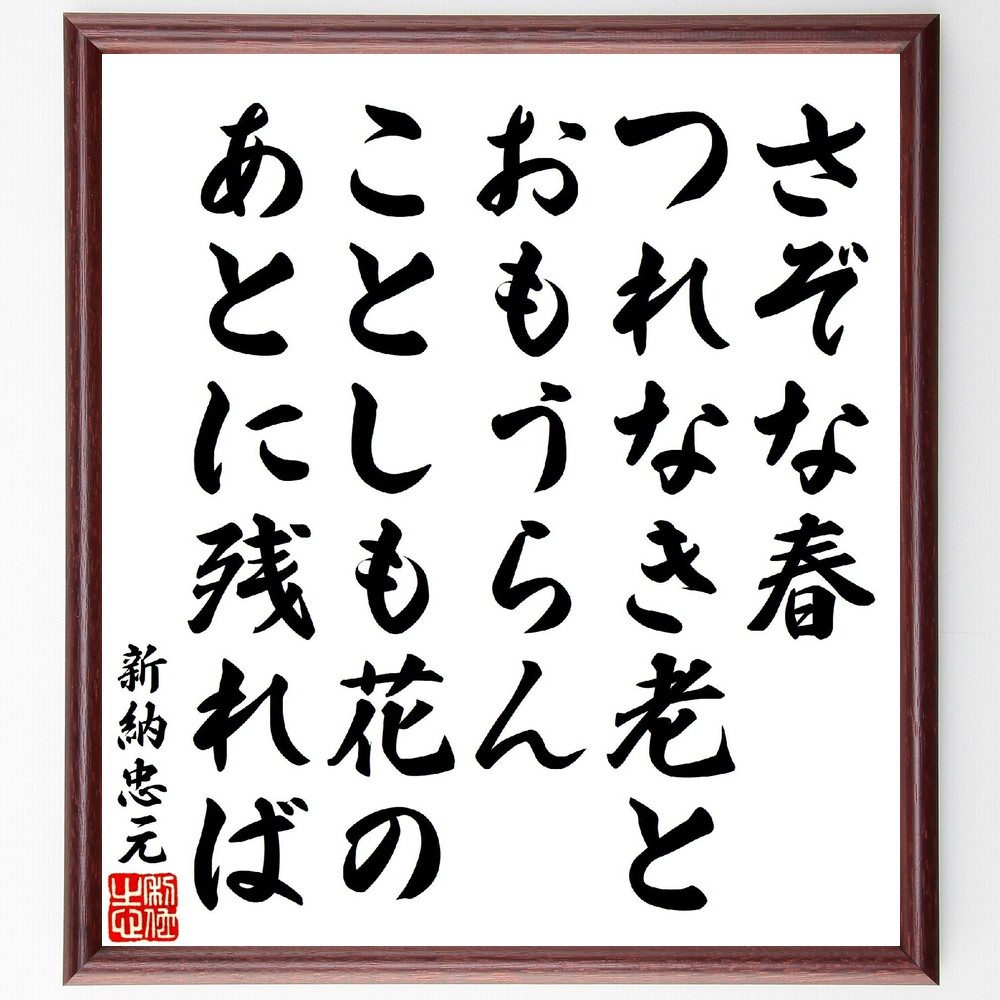 さぞな春
つれなき老と
おもうらん
ことしも花の
あとに残れば
新納忠元